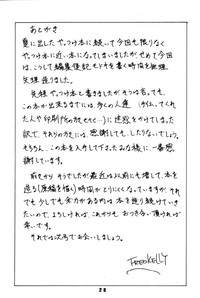 あとがき
夏に出した やっつけ本に続いて今回も限りなく
やっつけ本に近い本になってしまいましたが、せめて今回
は、こうして編集後記もどきを書く時間を無理
矢理 造りました。
矢理 やっつけ本だとそうは言っても、
この本が出来るまでには、多くの人達 (手伝ってくれ
た人や印刷所の方もそく…)に迷惑をかけてしまった
訳で、それらの方々には、感謝しても、したりないでしょう。
もちろん、この本を入手して下さったみな様に、一番感
謝しています。
前々から そうでしたが最近は以前にも増して、本を
造る(原稿を描く)時間がとりにくくなっていますが、それ
でも 少しでも余力がある内は 本を造り続けていき
たいので、よろしければ、これからも おつき合い頂ければ
幸いです。
それでは次号でお会いしましょう。
FREDKELLY
28